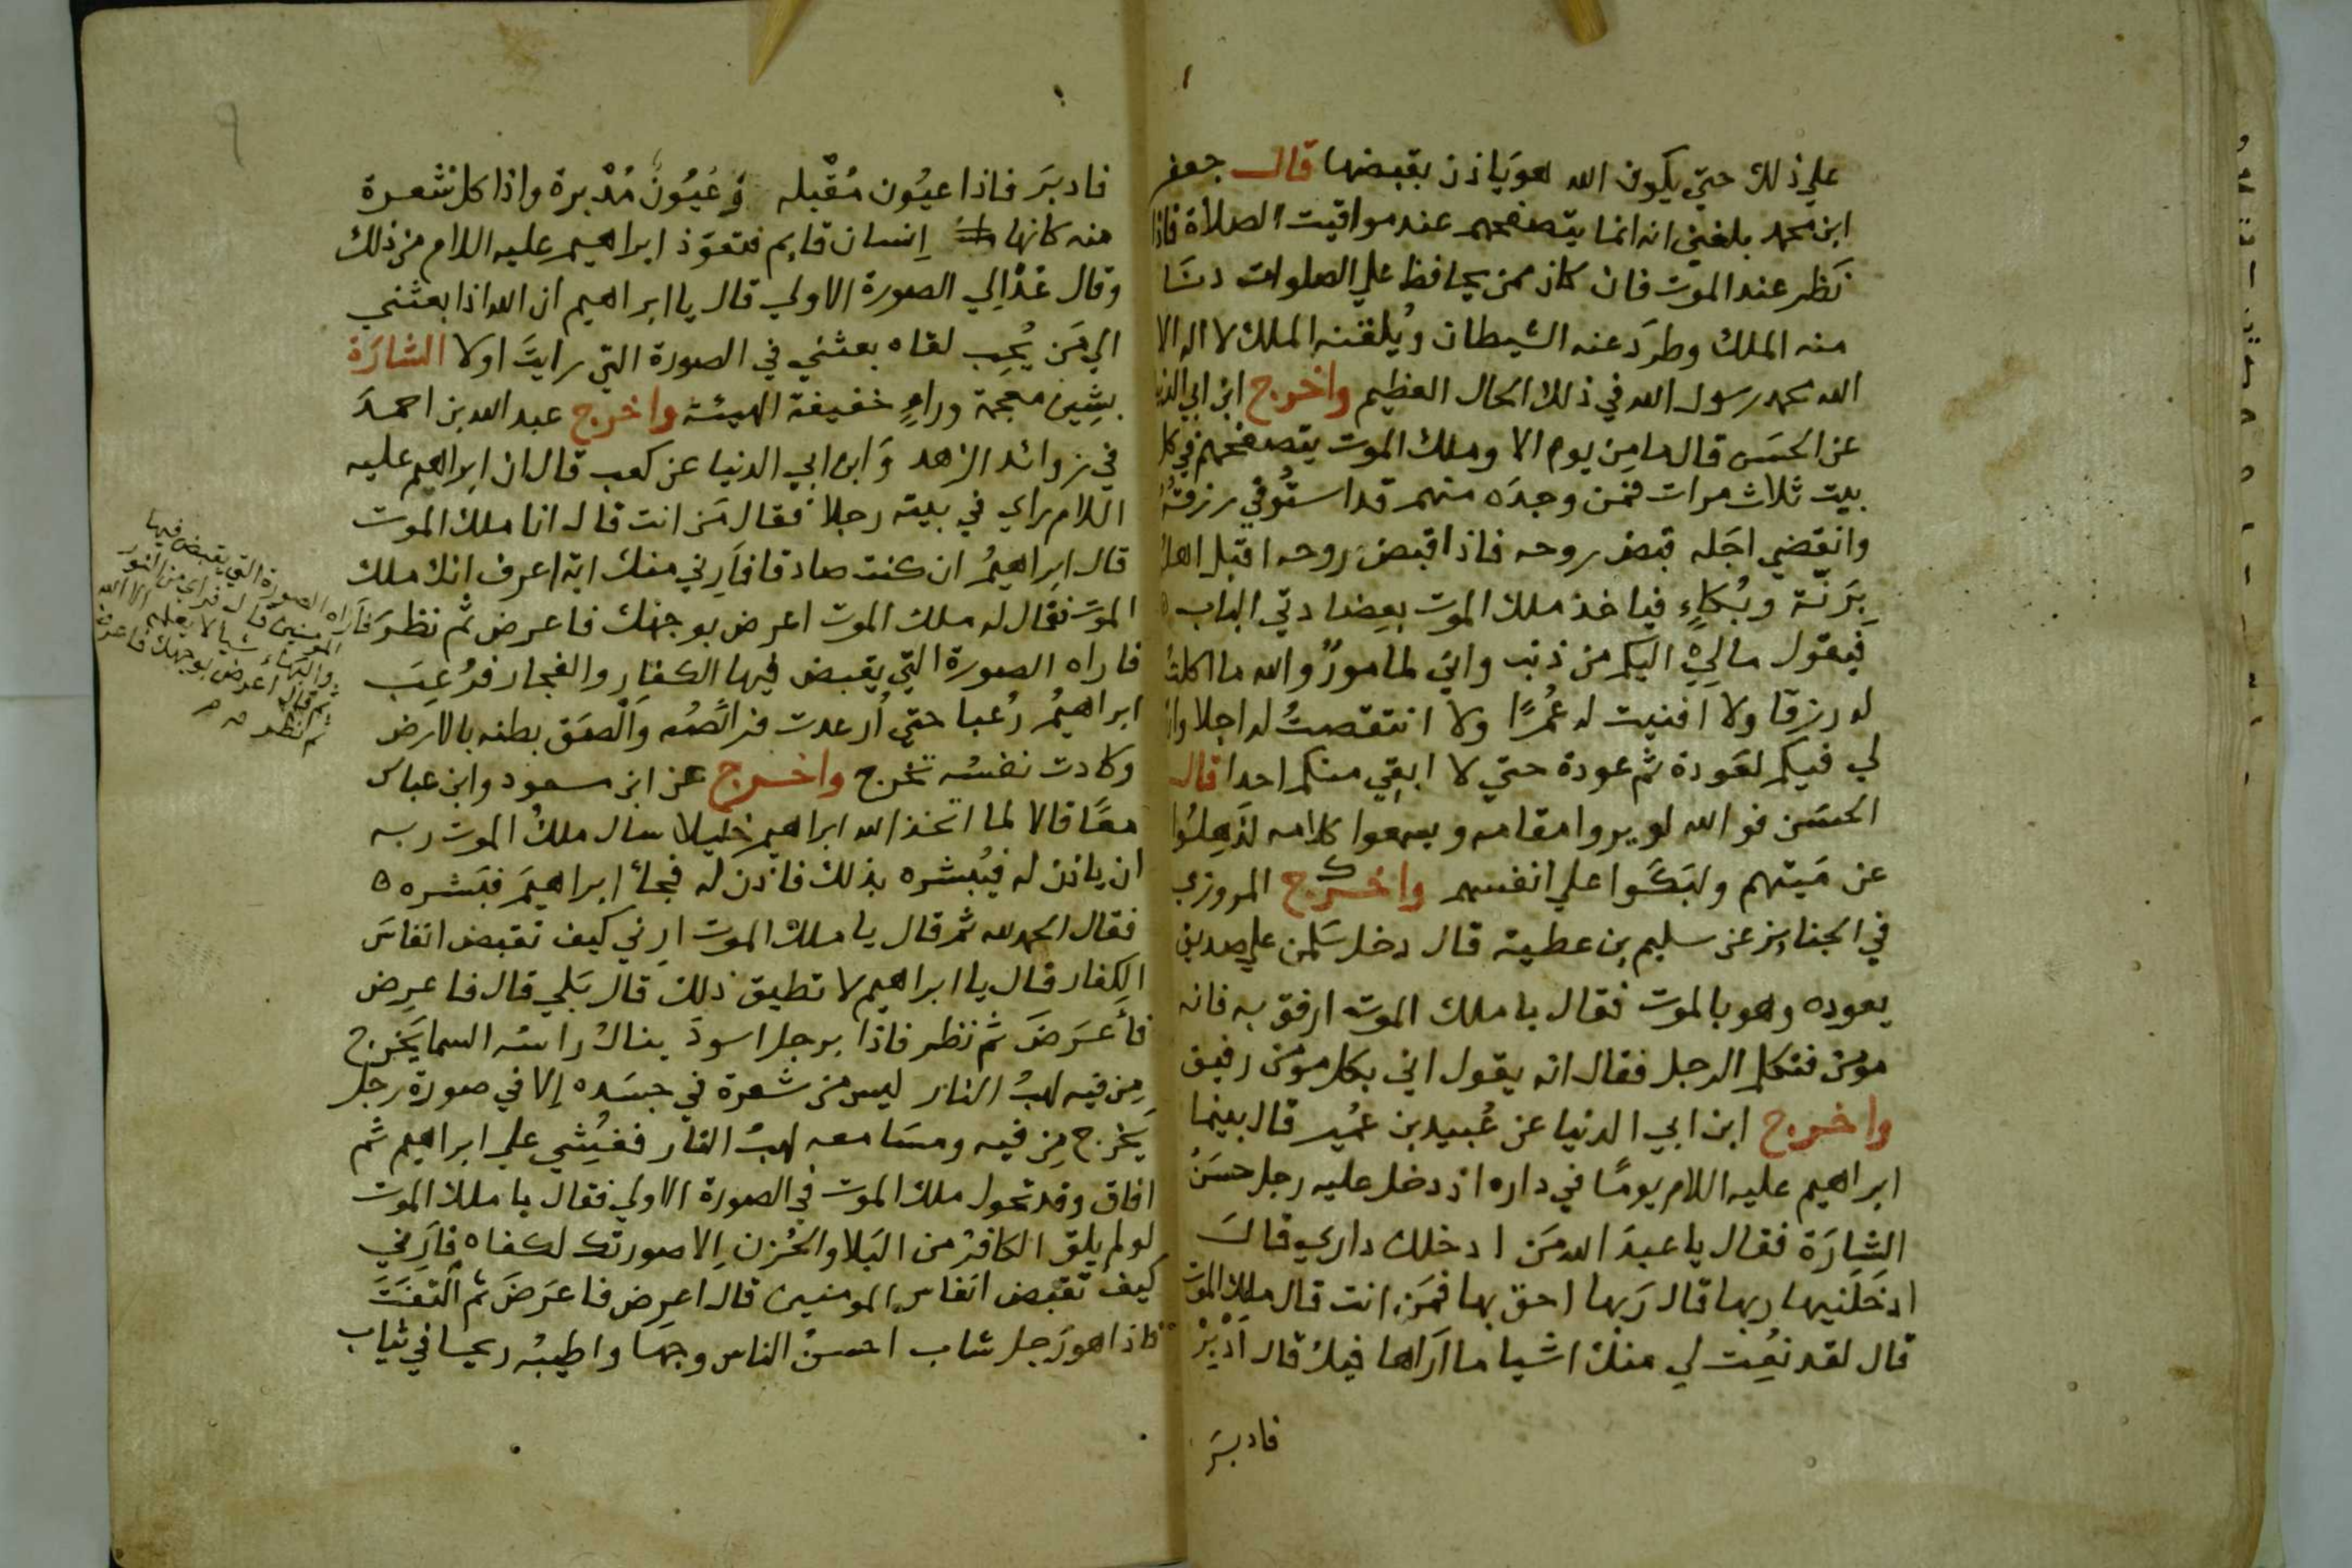 علي ذلك حتي يكون الله هو ياذن بقبضها قال جعفر
ابن محمد بلغني انه انما يتصفحهم عند مواقيت الصلاة فاذا
نظر عند الموت فان كان ممن يحافظ علي الصلوات دنا
منه الملك وطرد عنه الشيطان ويُلقنه الملك لا اله الا
الله محمد رسول الله في ذلك الحال العظيم واخرج ابن ابي الدنيا
عن الحسن قال ما من يوم الا وملك الموت يتصفحهم في كل
بيت ثلاث مرات فمن وجده منهم قد استُوفي رزقهُ
وانقضي اجله قبض روحه فاذا قبض روحه اقبل اهله
بِرَنّة وبُكاءٍ فياخذ ملك الموت بعضادتي الباب
فيقول مالي اليكم من ذنب واني لمامورٌ والله ما اكلتُ
له رزقا ولا افنيت له عُمرًا ولا انتقصتُ له اجلا وان
لي فيكم لعودة ثم عودة حتي لا ابقي منكم احدا قال
الحسن فو الله لو يروا مقامه ويسمعوا كلامه لذهلُوا
عن مَيتهم ولبَكَوا علي انفسهم واخرج المروزي
في الجنايز عن سليم بن عطية قال دخل سَلمن علي صديق
يعوده وهو بالموت فقال يا ملك الموت ارفق به فانه
مومن فتكلم الرجل فقال انه يقول اني بكل مومن رفيق
واخرج ابن ابي الدنيا عن عُبيد بن عمُير قال بينما
ابراهيم عليه اللام يومًا في داره اذ دخل عليه رجل حسَنُ
الشارَة فقال يا عبدَ الله مَن ادخلك داري قالَ
ادخَلَنيها ربها قال رَبها احق بها فمَن انت قال ملك الموت
قال لقد نُعِت لي منك اشيا ما اَراها فيك قال اَدْبِرْ
فادبَرَ
فادبَرَ فاذا عيُون مُقْبله وَعُيُونٌ مُدْبرة واذا كل شعرة
منه كانها اِنسان قايم فتعوّذ ابراهيم عليه اللام من ذلك
وقال عُدْ اِلي الصورة الاولي قال يا ابراهيم ان الله اذا بعثني
الي مَن يُحِب لقاه بعثني في الصورة التي رايتَ اولا الشارَة
بشين معجمة وراءٍ خفيفة الهيئة واخرج عبد الله بن احمدَ
في زوائد الزهد وَابن ابي الدنيا عن كعب قال ان ابراهيم عليه
اللام راي في بيته رجلا فقال مَن انت قال انا ملك الموت
قال ابراهيمُ ان كنت صادقا فاَرِني منك اية اعرف انك ملك
الموت فقال له ملك الموت اعرض بوجهك فاعرض ثم نظرَ
فاراه الصورة التي يقبض فيها الكفار والفجار فرُعِبَ
ابراهيمُ رُعبا حتي اُرعدت فرائصُه واَلصَق بطنه بالارض
وكادت نفسُه تخرج واخرج عن ابن مسعود وابن عباس
معًا قالا لما اتخذ الله ابراهيم خليلا سال ملكُ الموت ربه
ان ياذن له فيُبشره بذلك فاذن له فجاءَ ابراهيمَ فبَشره
فقال الحمد لله ثم قال يا ملك الموت ارِني كيف تقبض انفاسَ
الكفار قال يا ابراهيم لا تطيق ذلك قال بَلي قال فاعرِض
فأعرَضَ ثم نظر فاذا برجل اسودَ ينالُ راسُه السما يَخرج
مِن فيه لهبُ النار ليس من شعرة في جسَده اِلا في صورة رجل
يَخرج مِن فيه ومسَامعه لهبُ النار فغُشِي علي ابراهيم ثم
افاق وقد تحول ملك الموت في الصورة الاولي فقال يا ملك الموت
لو لم يلق الكافرُ من البَلا والحُزن اِلا صورتك لكفاه فاَرِني
كيف تقبض انفاس المومنين قال اعرِض فاعرَضَ ثم التفَتَ
فاذا هو رَجل شاب احسنُ الناس وجهًا واطيبُه ريحا في ثياب
فاَراه الصورة التي يقبض فيها
المومنين قال فراي من النور
والبَهاء شيا لا يعلمه الا الله
ثم قال اعرض بوجهك فاعرض
ثم نظر
٩